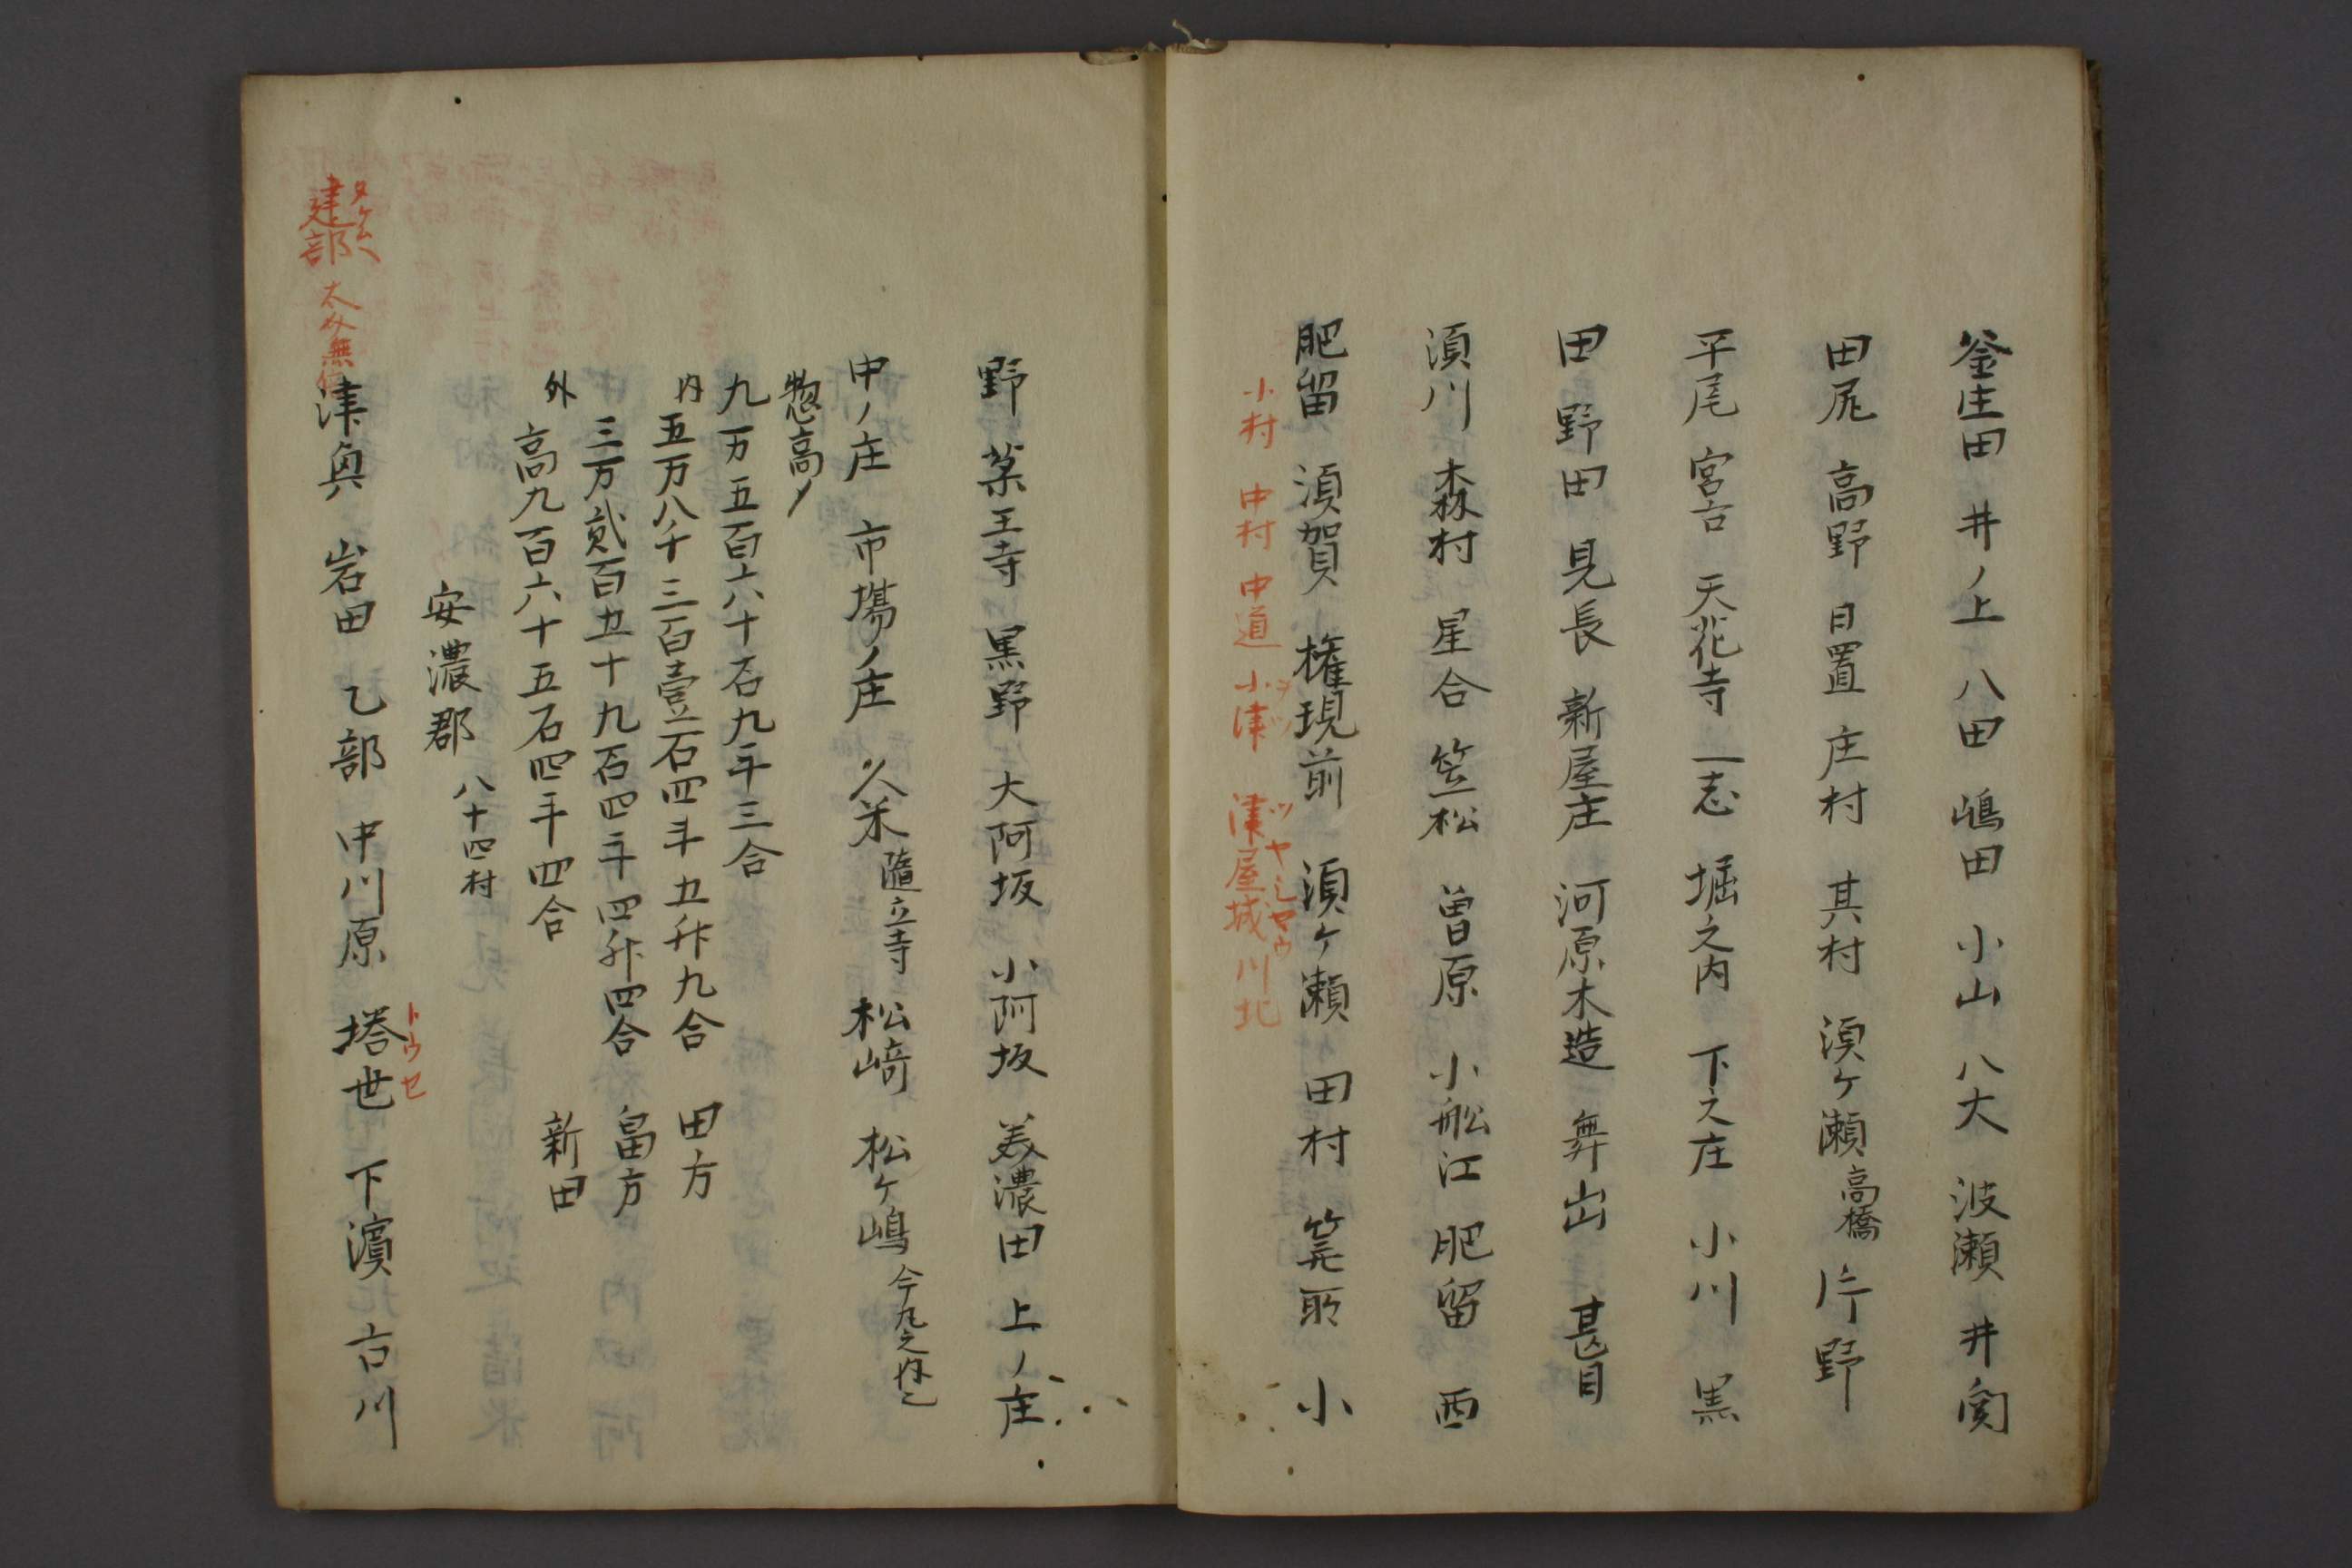 釜庄田 井ノ上 八田 嶋田 小山 八大 波瀬 井関
田尻 高野 日置 庄村 其村 須ケ瀬 高橋 片野
平尾 宮古 天花寺 一志 堀之内 下之庄 小川 黒
田 野田 見長 新屋庄 河原木造 舞出 甚目
須川 森村 星合 笠松 曽原 小舩江 肥留 西
肥留 須賀 権現前 須ケ瀬 田村 筧所 小
小村 中村 中道 小津 津屋城 川北
ヲツ
ツヤシヤウ
野 薬王寺 黒野 大阿坂 小阿坂 美濃田 上ノ庄
中ノ庄 市場ノ庄 久米 隨立寺 松﨑 松ケ嶋
惣高〆
九万五百六十石九斗三合
内 五万八千三百壹石四斗五升九合 田方
三万貮百五十九石四斗四升四合 畠方
外 高九百六十五石四斗四合 新田
安濃郡 八十四村
建部
津輿 岩田 乙部 中川原 塔世 下濵 古川
トウセ